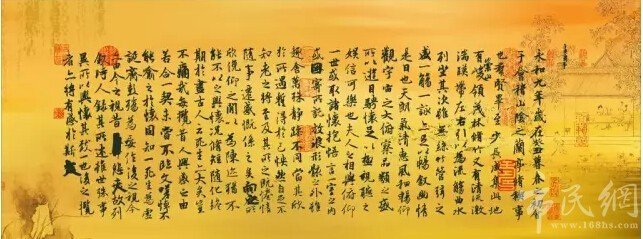 永和九年歲在癸丑暮春之初會
于會稽山陰之蘭亭脩稧事
也群賢畢至少長咸集此地
有崇山峻領茂林脩竹又有清流激
湍暎帶左右引以為流觴曲水
列坐其次雖無絲竹管弦之
盛一觴一詠亦足以暢敘幽情
是日也天朗氣清惠風和暢仰
觀宇宙之大俯察品類之盛
所以遊目騁懷足以極視聽之
娛信可樂也夫人之相與俯仰
一世或取諸懷抱悟言一室之內
或因寄所託放浪形骸之外雖
趣舍萬殊靜躁不同當其欣
於所遇蹔得於己怏然自足不
知老之將至及其所之既惓情
隨事遷感慨係之矣向之所
欣俛仰之閒以為陳迹猶不
能不以之興懷況脩短隨化終
期於盡古人云死生亦大矣豈
不痛哉每攬昔人興感之由
若合一契未嘗不臨文嗟悼不
能喻之於懷固知一死生為虛
誕齊彭殤為妄作後之視今
亦由今之視昔悲夫故列
敘時人錄其所述雖世殊事
異所以興懷其致一也後之攬
者亦將有感於斯文
市民网
www.168hs.com